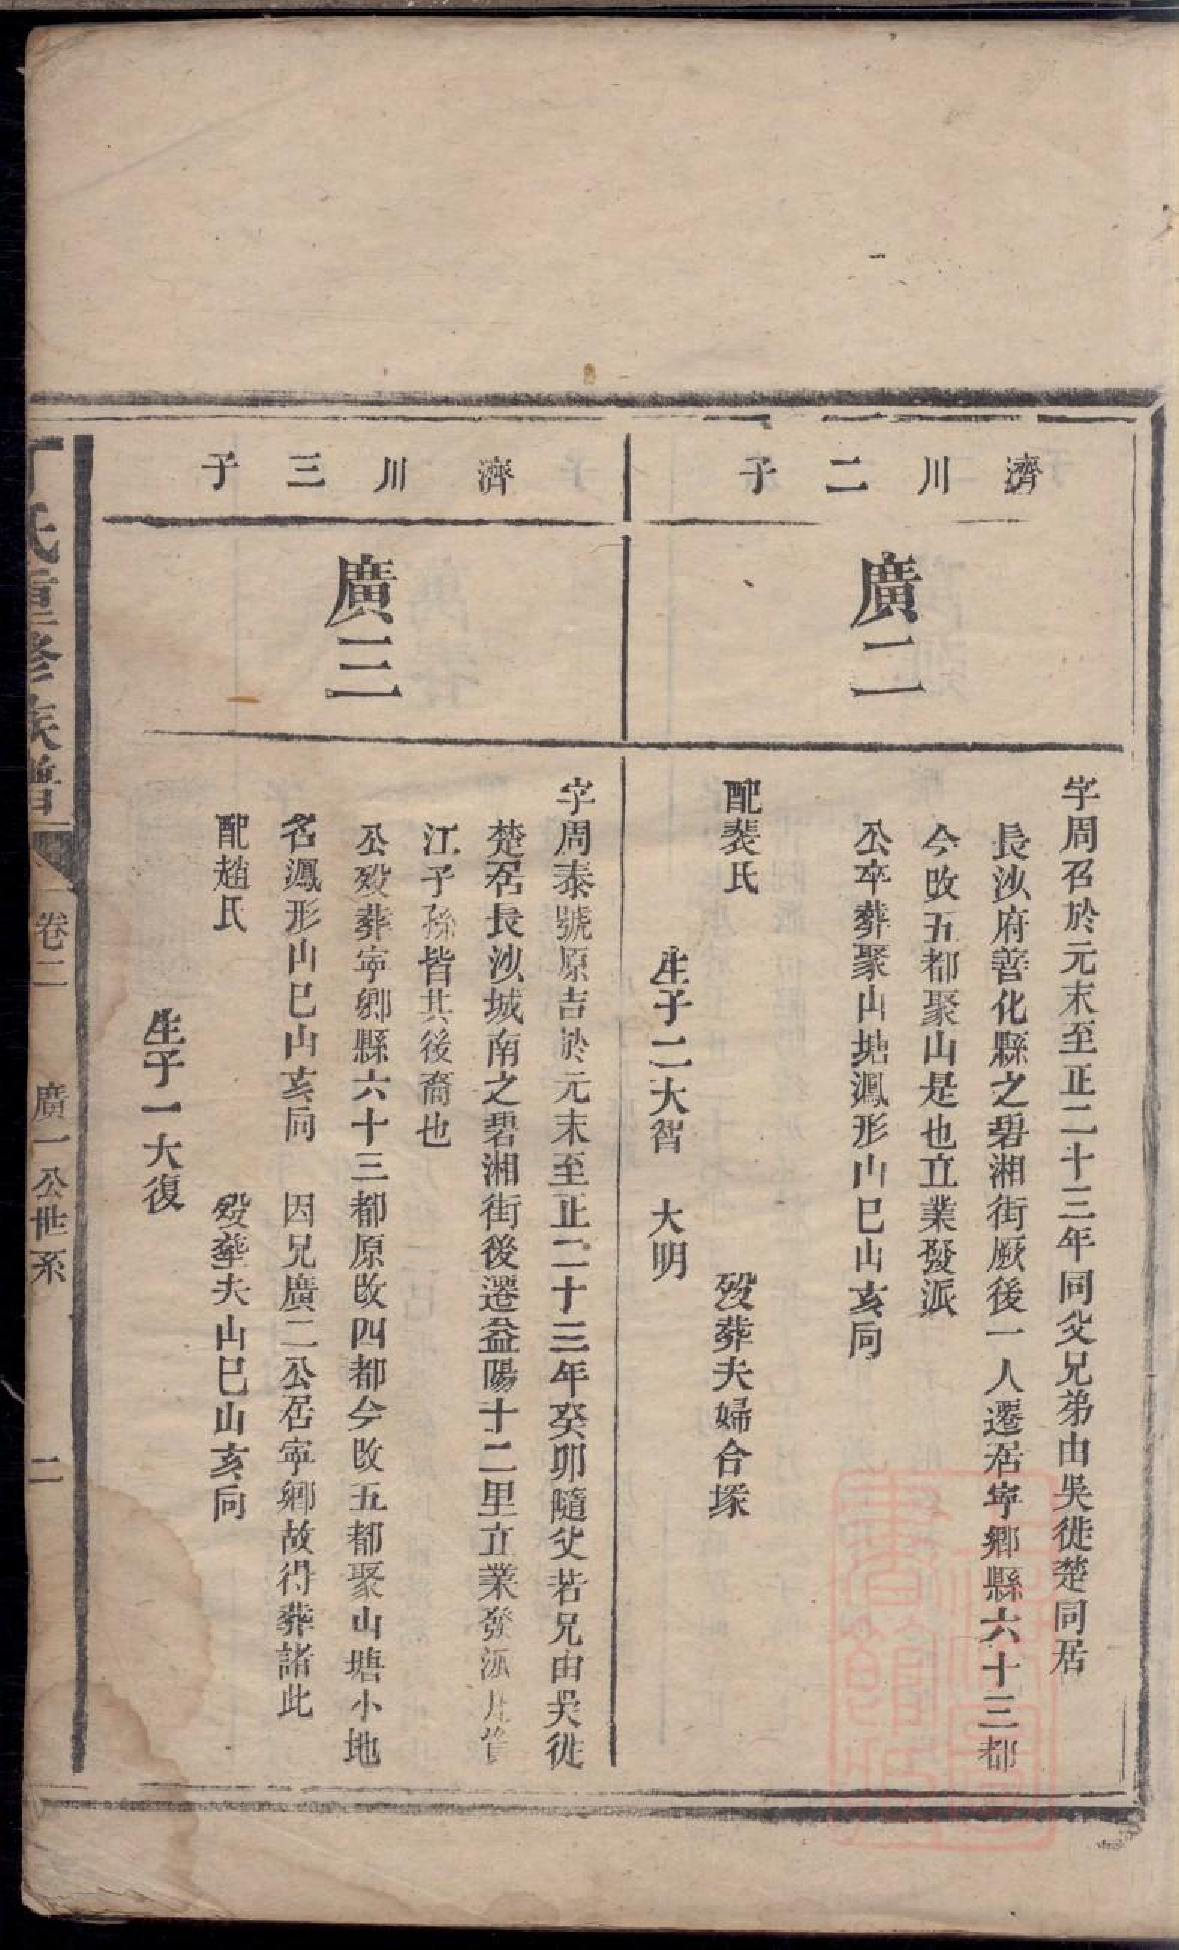 濟川二子
廣二
字周召於元末至正二十三年同父兄弟由吳徙楚同居
長沙府善化縣之碧湘街厥後一人遷居寧鄉縣六十三都
今改五都聚山是也立業發派
公卒葬聚山塘鳳形山巳山亥向
配裴氏 歿葬夫婦合塚
生子二大智 大明
濟川三子
廣三
字周泰號原吉於元末至正二十三年癸卯隨父若兄由吳徙
楚居長沙城南之碧湘街後遷益陽十二里立業發派
江子孫皆其後裔也
公歿葬寧鄉縣六十三都原改四都今改五都聚山塘小地
名鳳形山巳山亥向 因兄廣二公居寧鄉故得葬諸此
配趙氏 歿葬夫山巳山亥向
生子一大復
丁氏重修族譜 卷二 廣一公世系 二